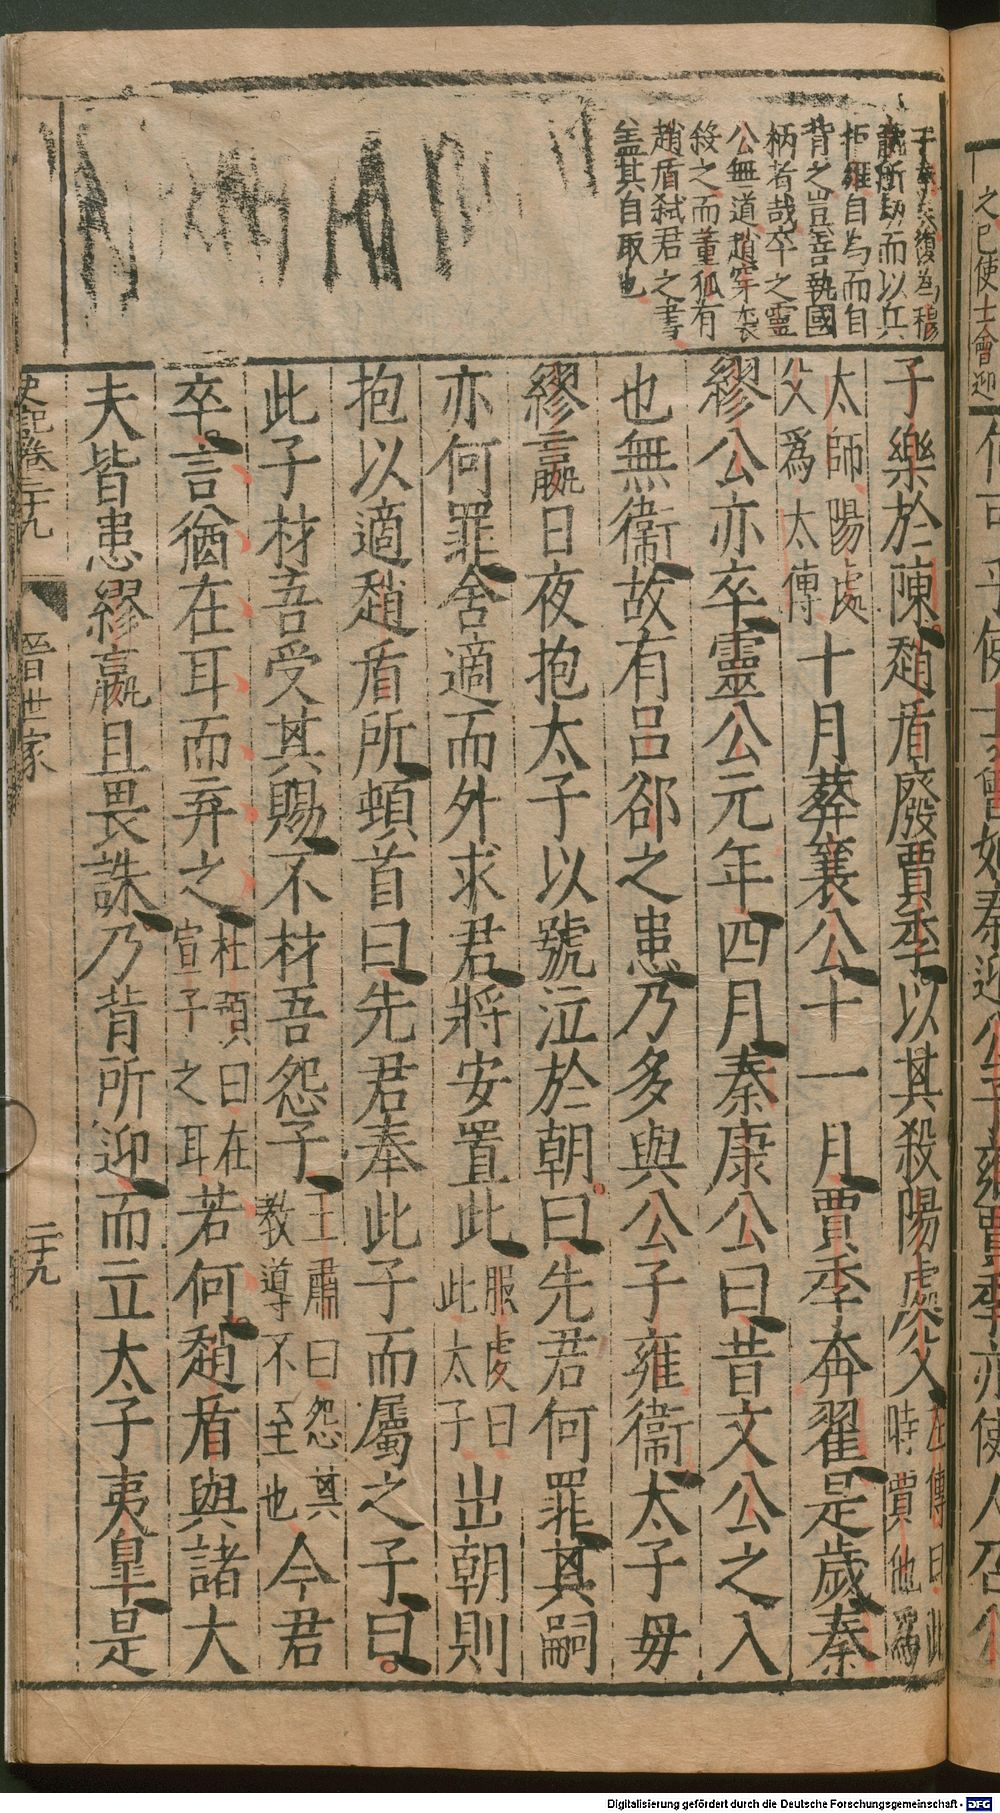 所劫而以兵
拒雍自為而自
背之豈吾執國
柄者哉卒之靈
公無道趙穿
之而董狐有
趙盾弑君之書
盖其自取也
子樂於陳趙盾廢賈季以其殺陽處父左傳曰此時賈他為
太師陽處父爲太傅十月葬襄公十一月賈季奔翟是歲秦
繆公亦卒靈公元年四月秦康公曰昔文公之入
也無衞故有吕郤之患乃多與公子雍衞太子毋
繆嬴日夜抱太子以號泣於朝曰先君何罪其嗣
亦何罪舍適而外求君將安置此服虔曰此太子出朝則
抱以適趙盾所頓首曰先君奉此子而屬之子曰
此子材吾受其賜不材吾怨子王肅曰怨其教導不至也今君
卒言猶在耳而弃之杜預曰在宣子之耳若何趙盾與諸大
夫皆患繆嬴且畏誅乃背所迎而立太子夷臯是
史記卷三十九
晉世家
二十九
之已使士會迎
Digitalisierung gefördert durch die Deutsche Forschungsgemeinschaft - DFG